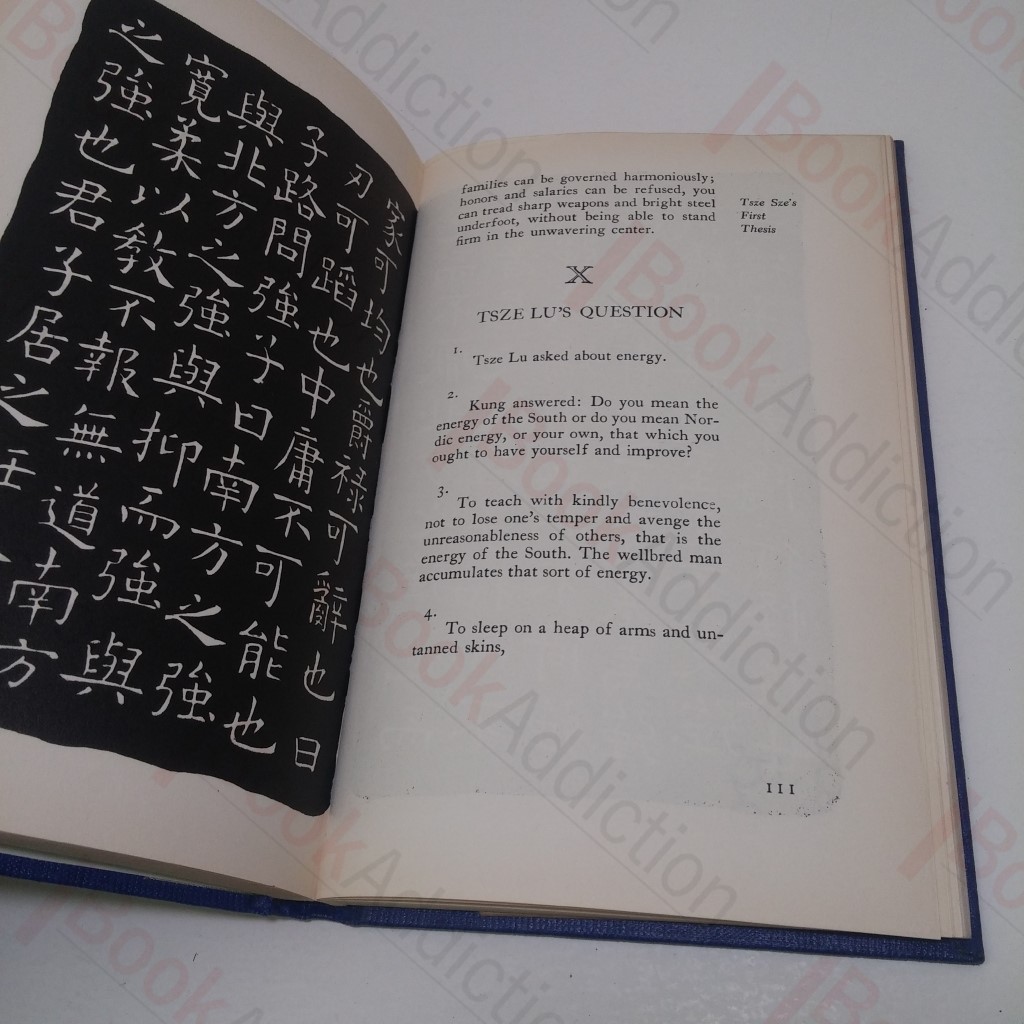 家可均也爵祿可辭也白
刃可蹈也中庸不可能也
子路問強子曰南方之強
與北方之強與抑而強與
寬柔以敎不報無道南方
之強也君子居之
families can be governed harmoniously;
honors and salaries can be refused, you
can tread sharp weapons and bright steel
underfoot, without being able to stand
firm in the unwavering center.
Tsze Sze's
First
Thesis
X
TSZE LU'S QUESTION
1.
Tsze Lu asked about energy.
2.
Kung answered: Do you mean the
energy of the South or do you mean Nor-
dic energy, or your own, that which you
ought to have yourself and improve?
3.
To teach with kindly benevolence,
not to lose one's temper and avenge the
unreasonableness of others, that is the
energy of the South. The wellbred man
accumulates that sort of energy.
4.
To sleep on a heap of arms and un-
tanned skins,
111
BookAddiction
BookAddiction
BookAddiction
BookAddiction